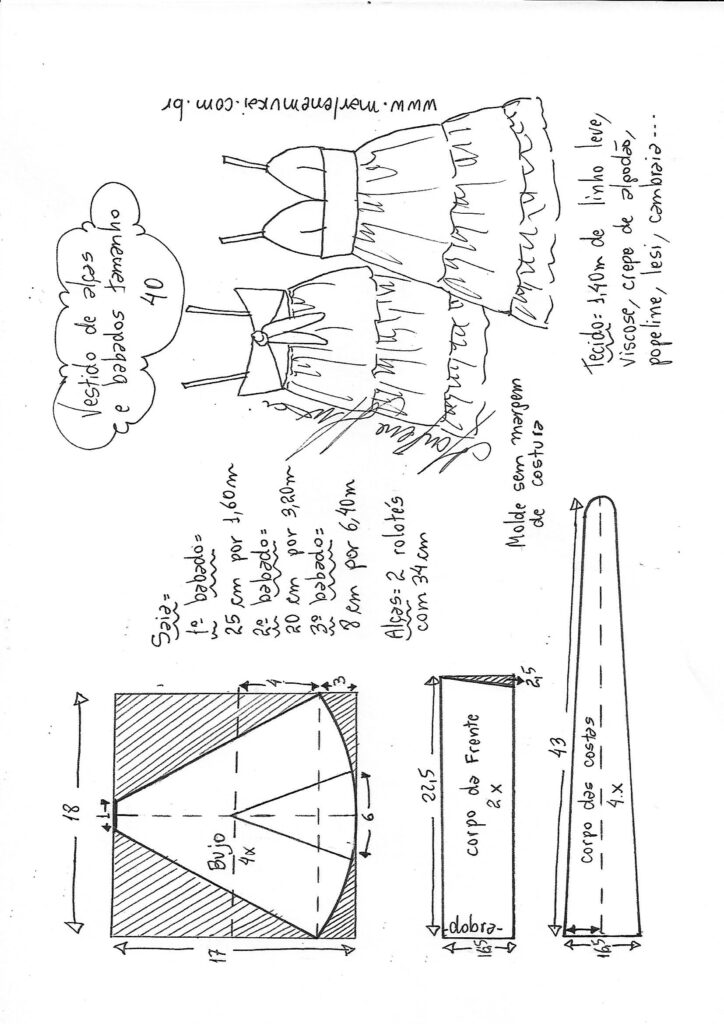 Vestido de alças
e babados tamanho
40
www.marlenemukai.com.br
Saia=
1º babado=
25 cm por 1,60m
2º babado=
20 cm por 3,20m
3º babado=
8 cm por 6,40m
Alças= 2 rolotês
com 34 cm
Molde sem margem
de costura
Tecido= 1,40m de linho leve,
viscose, crepe de algodão,
popeline, lesi, cambraia...
18
1
Bujo
4x
4
3
6
17
22,5
corpo da Frente
2x
-dobra-
2,5
43
corpo das costas
4x